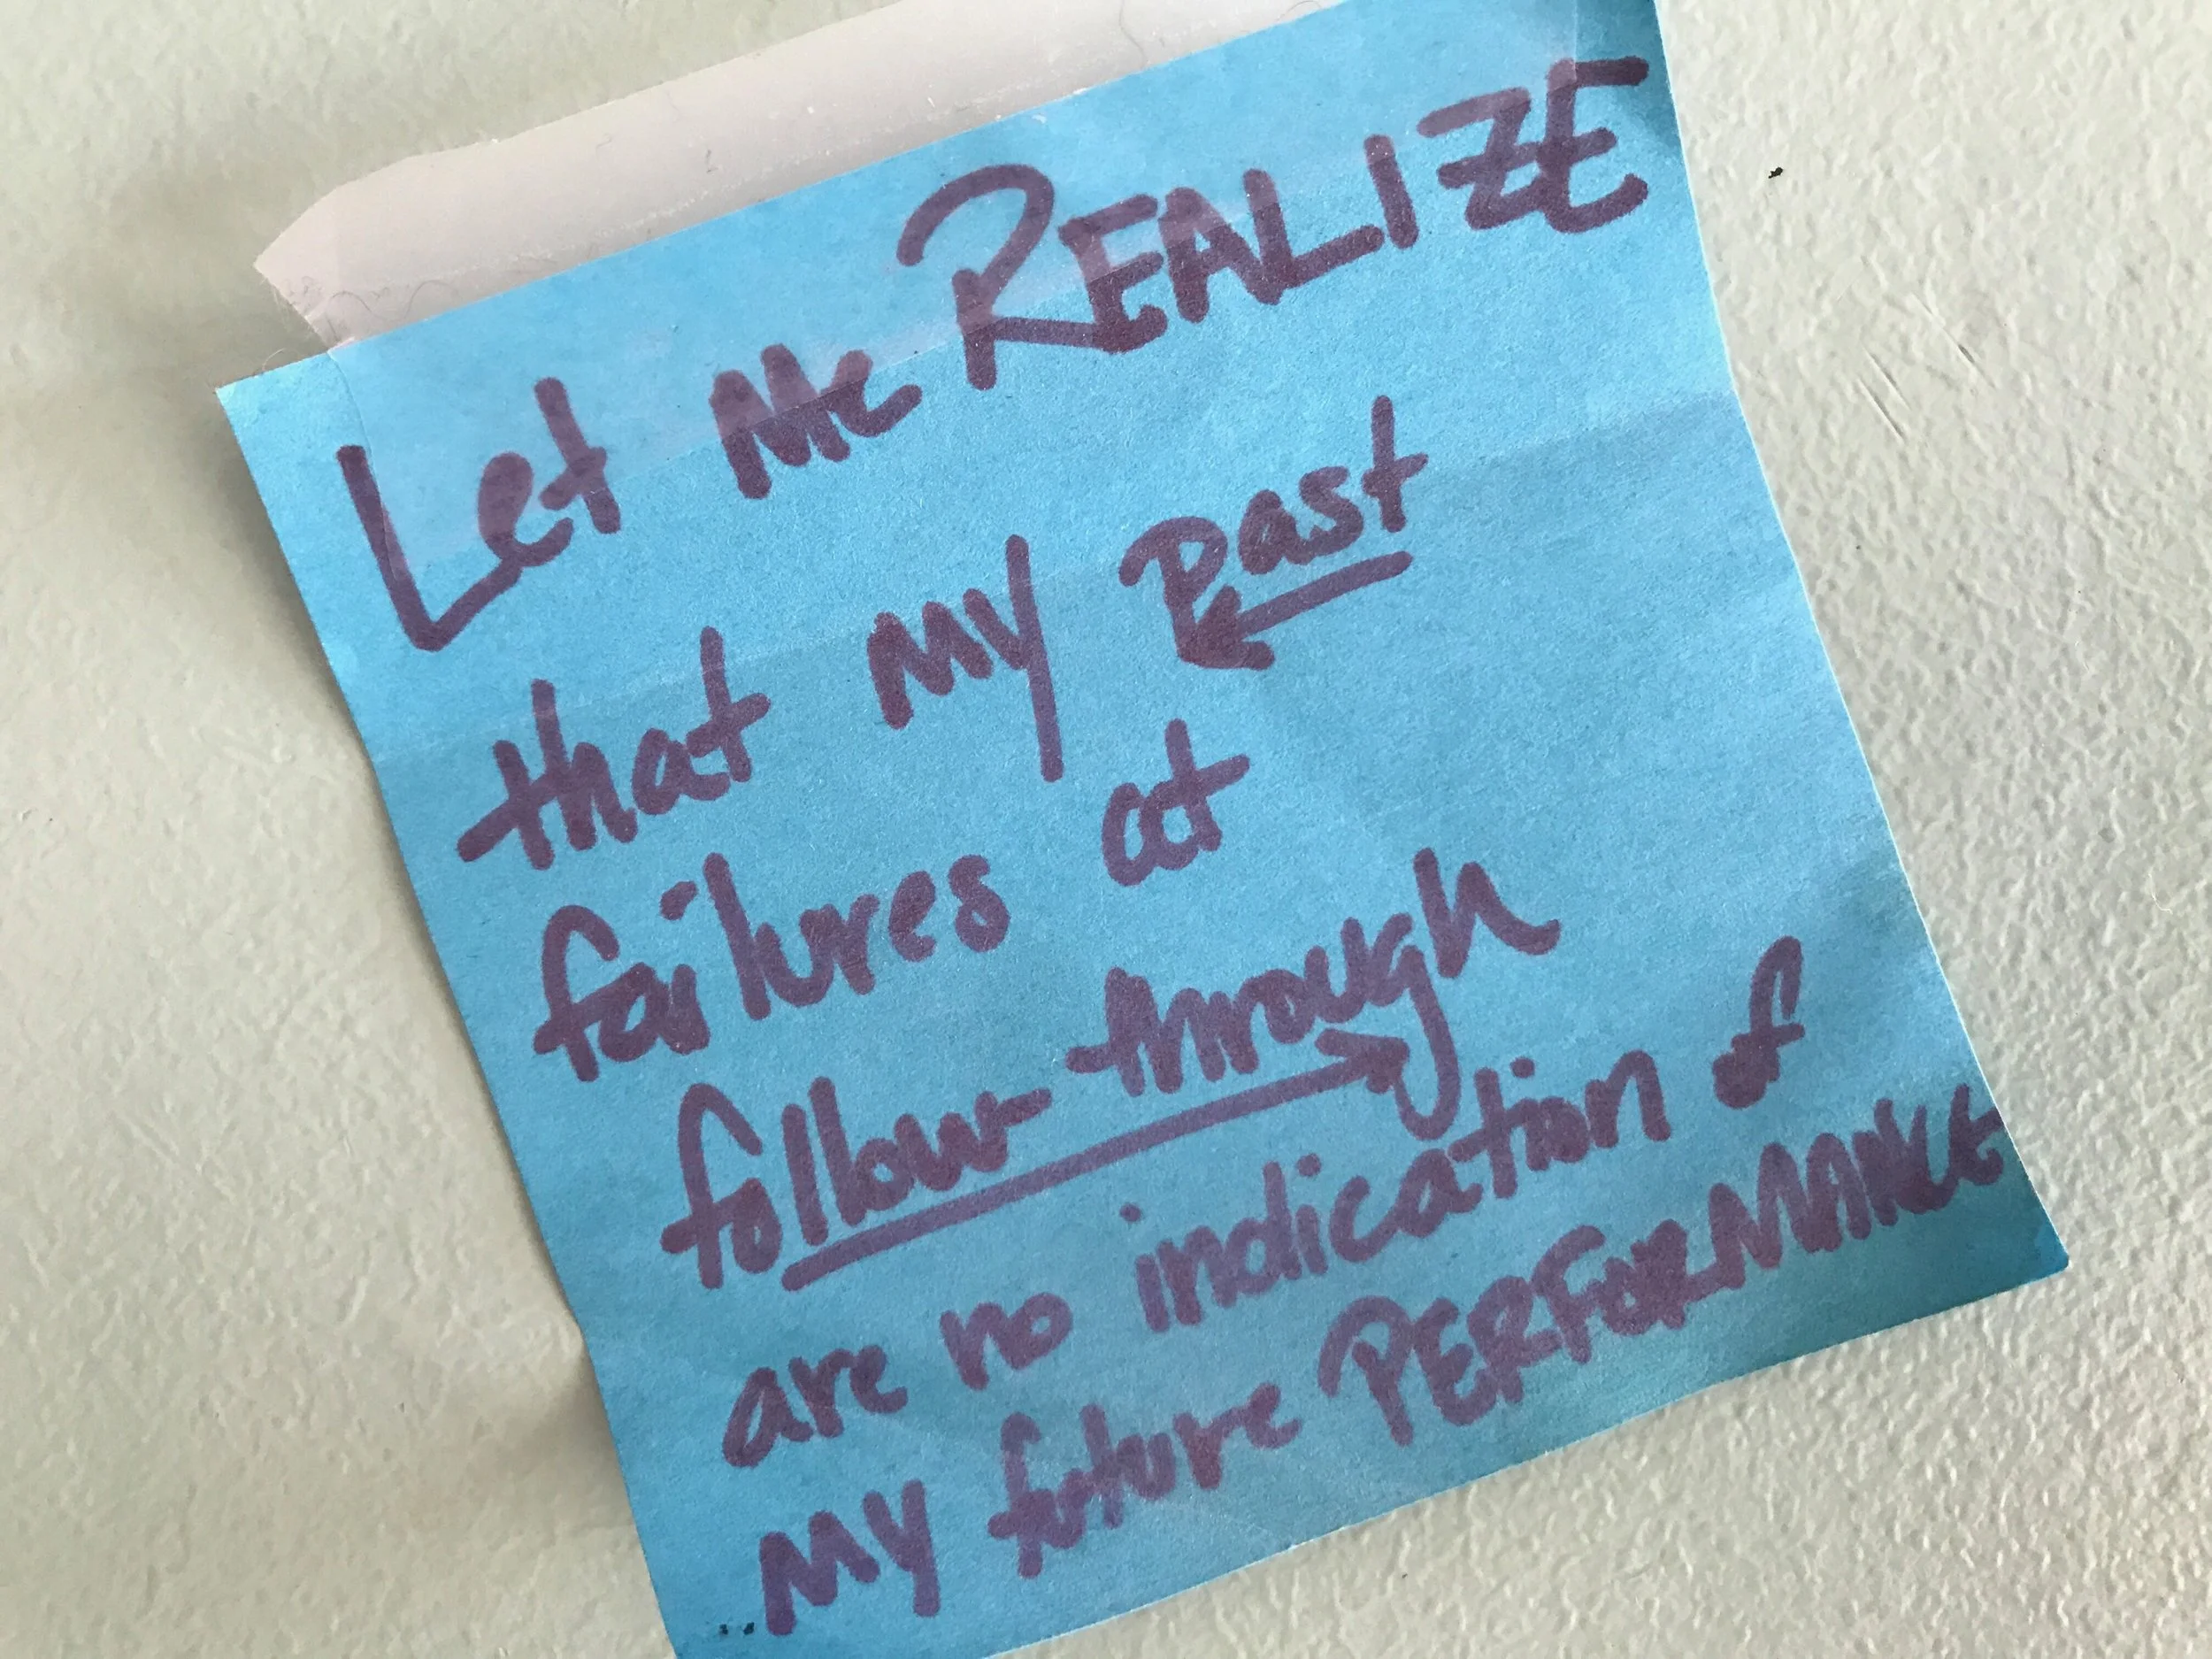 Let Me REALIZE
that my past
failures at
follow-through
are no indication of
my future PERFORMANCE